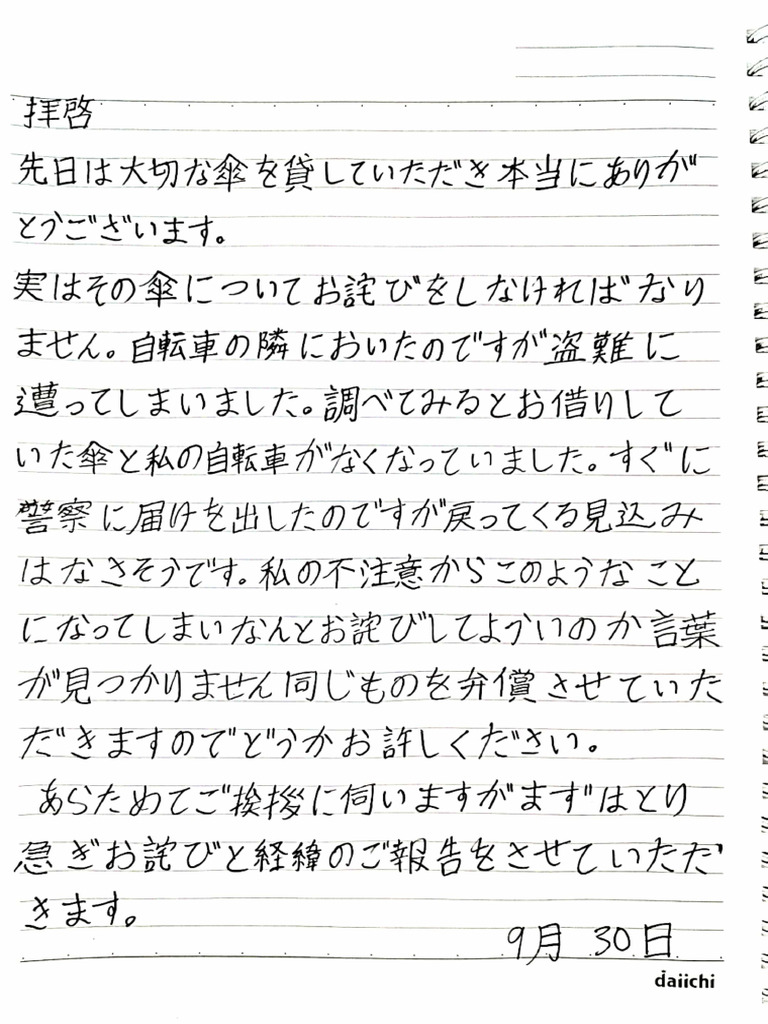 拝啓
先日は大切な傘を貸していただき本当にありが
とうございます。
実はその傘についてお詫びをしなければなり
ません。自転車の隣においたのですが盗難に
遭ってしまいました。調べてみるとお借りして
いた傘と私の自転車がなくなっていました。すぐに
警察に届けを出したのですが戻ってくる見込み
はなさそうです。私の不注意からこのようなこと
になってしまいなんとお詫びしてよういのか言葉
が見つかりません同じものを弁償させていた
だきますのでどうかお許しください。
あらためてご挨拶に伺いますがまずはとり
急ぎお詫びと経緯のご報告をさせていただ
きます。
9月 30日
daiichi